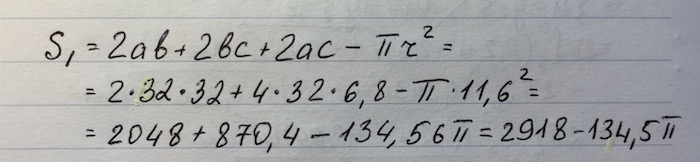 S₁ = 2ab + 2bc + 2ac − πr² =
= 2·32·32 + 4·32·6,8 − π·11,6² =
= 2048 + 870,4 − 134,56π = 2918 − 134,5π